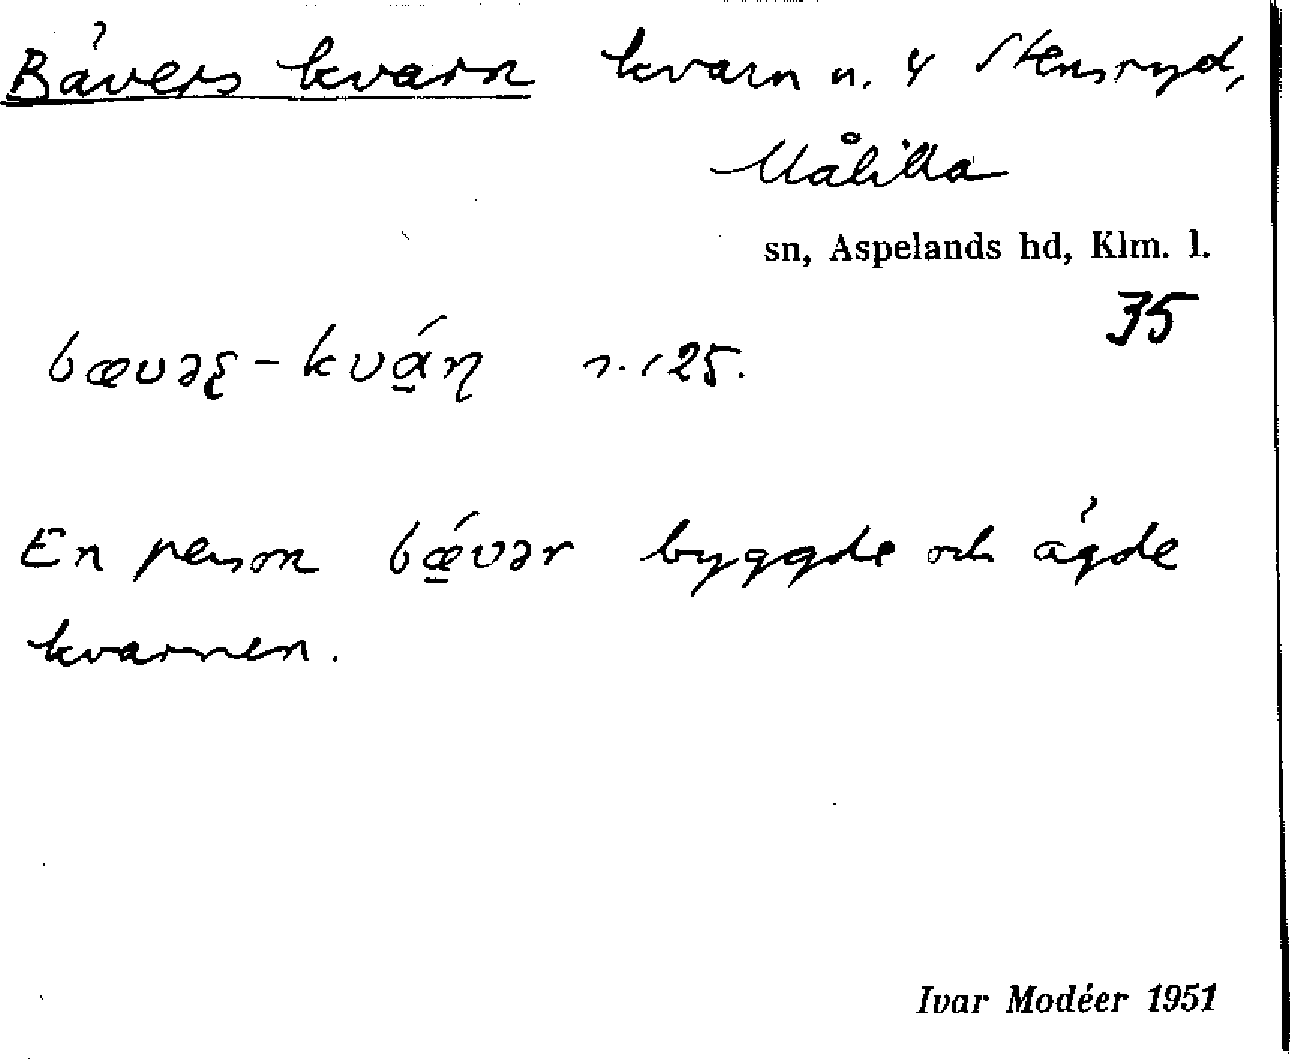 Bävers kvarn kvarn u. 4 Stensryd,
Målilla
sn, Aspelands hd, Klm. l.
35
bævəʂ-kvά̱ɳ 125.
En person bǽ̱vər byggde och ägde
kvarnen.
Ivar Modéer 1951